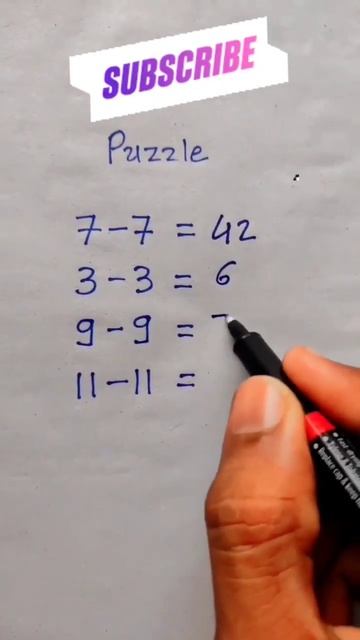 SUBSCRIBE
Puzzle
7-7 = 42
3-3 = 6
9-9 =
11-11 =